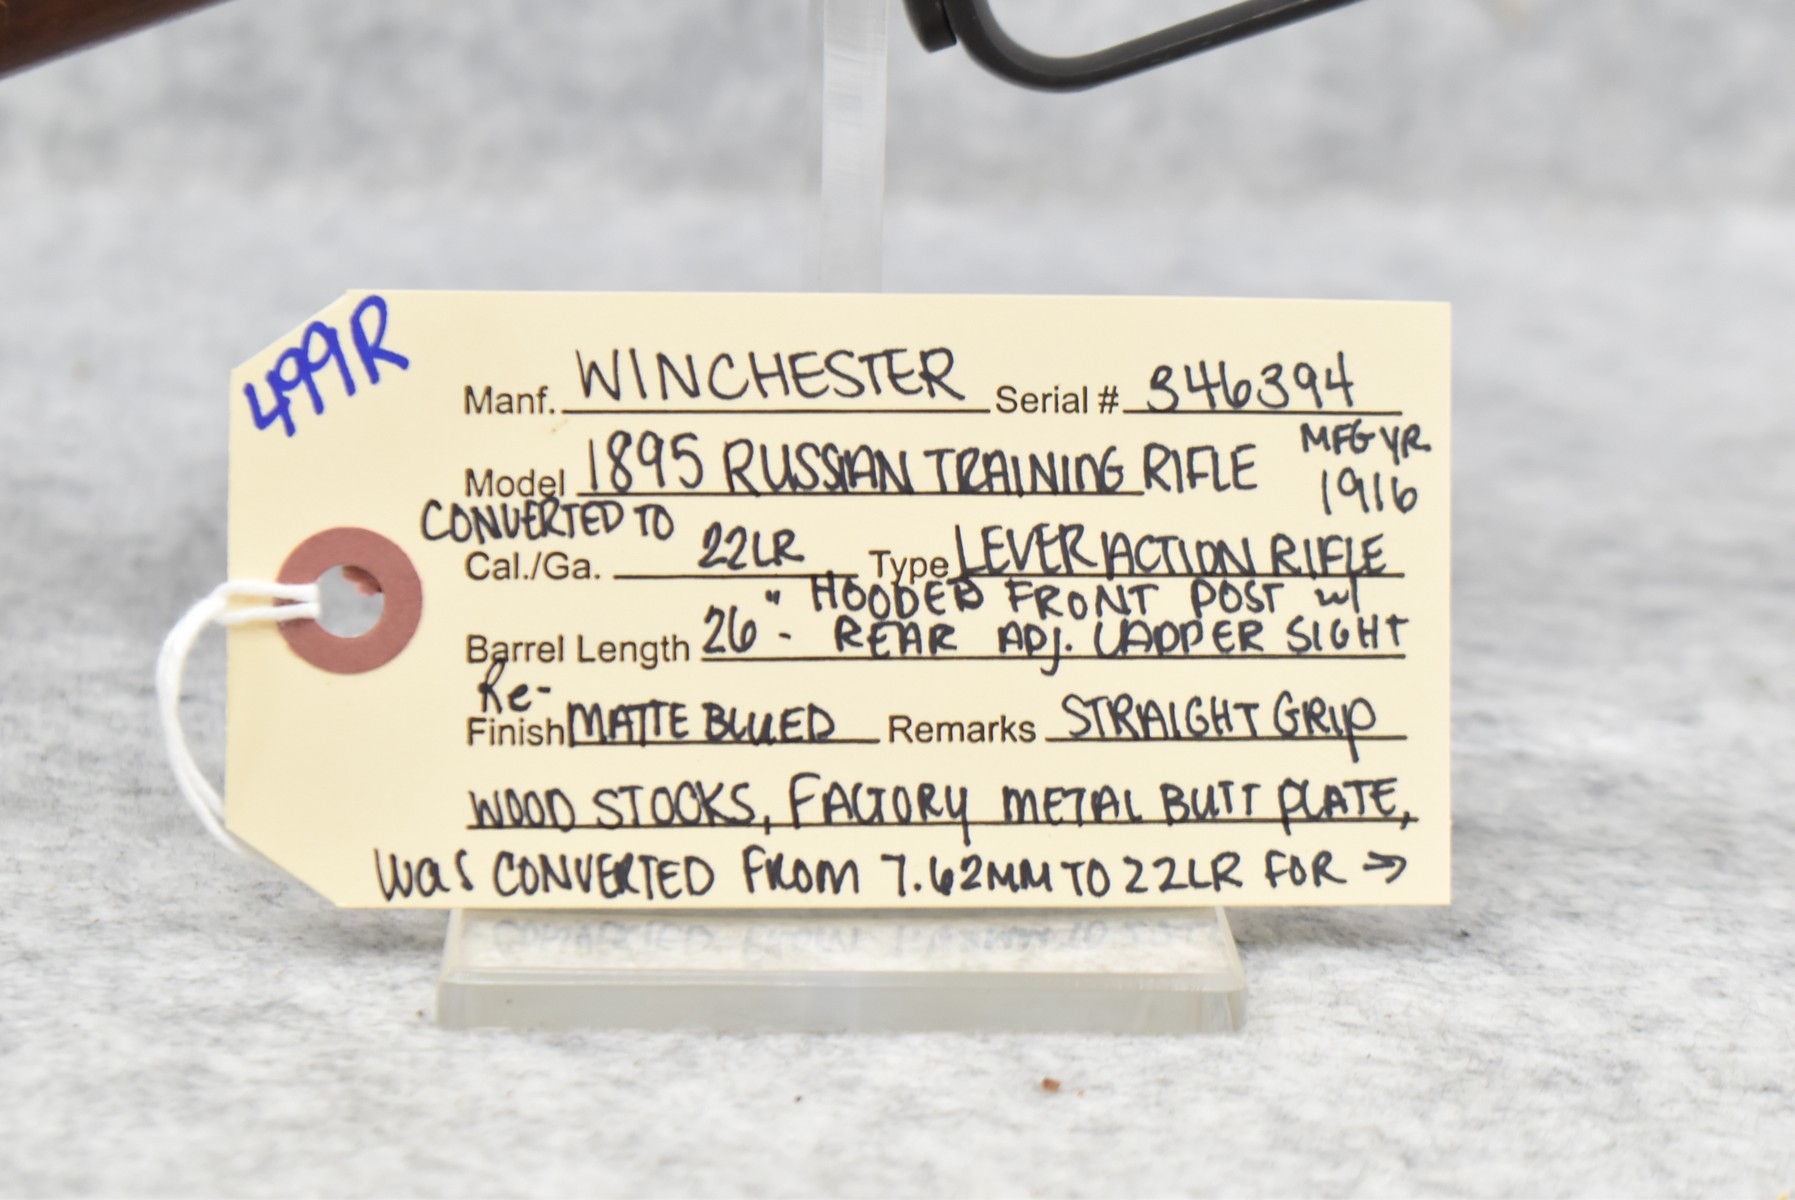 499R
Manf. WINCHESTER Serial # 346394
Model 1895 RUSSIAN TRAINING RIFLE MFG YR. 1916
CONVERTED TO
Cal./Ga. 22LR Type LEVER ACTION RIFLE
Barrel Length 26" - HOODED FRONT POST w/
REAR ADJ. LADDER SIGHT
Re-
Finish MATTE BLUED Remarks STRAIGHT GRIP
WOOD STOCKS, FACTORY METAL BUTT PLATE,
WAS CONVERTED FROM 7.62MM TO 22LR FOR →